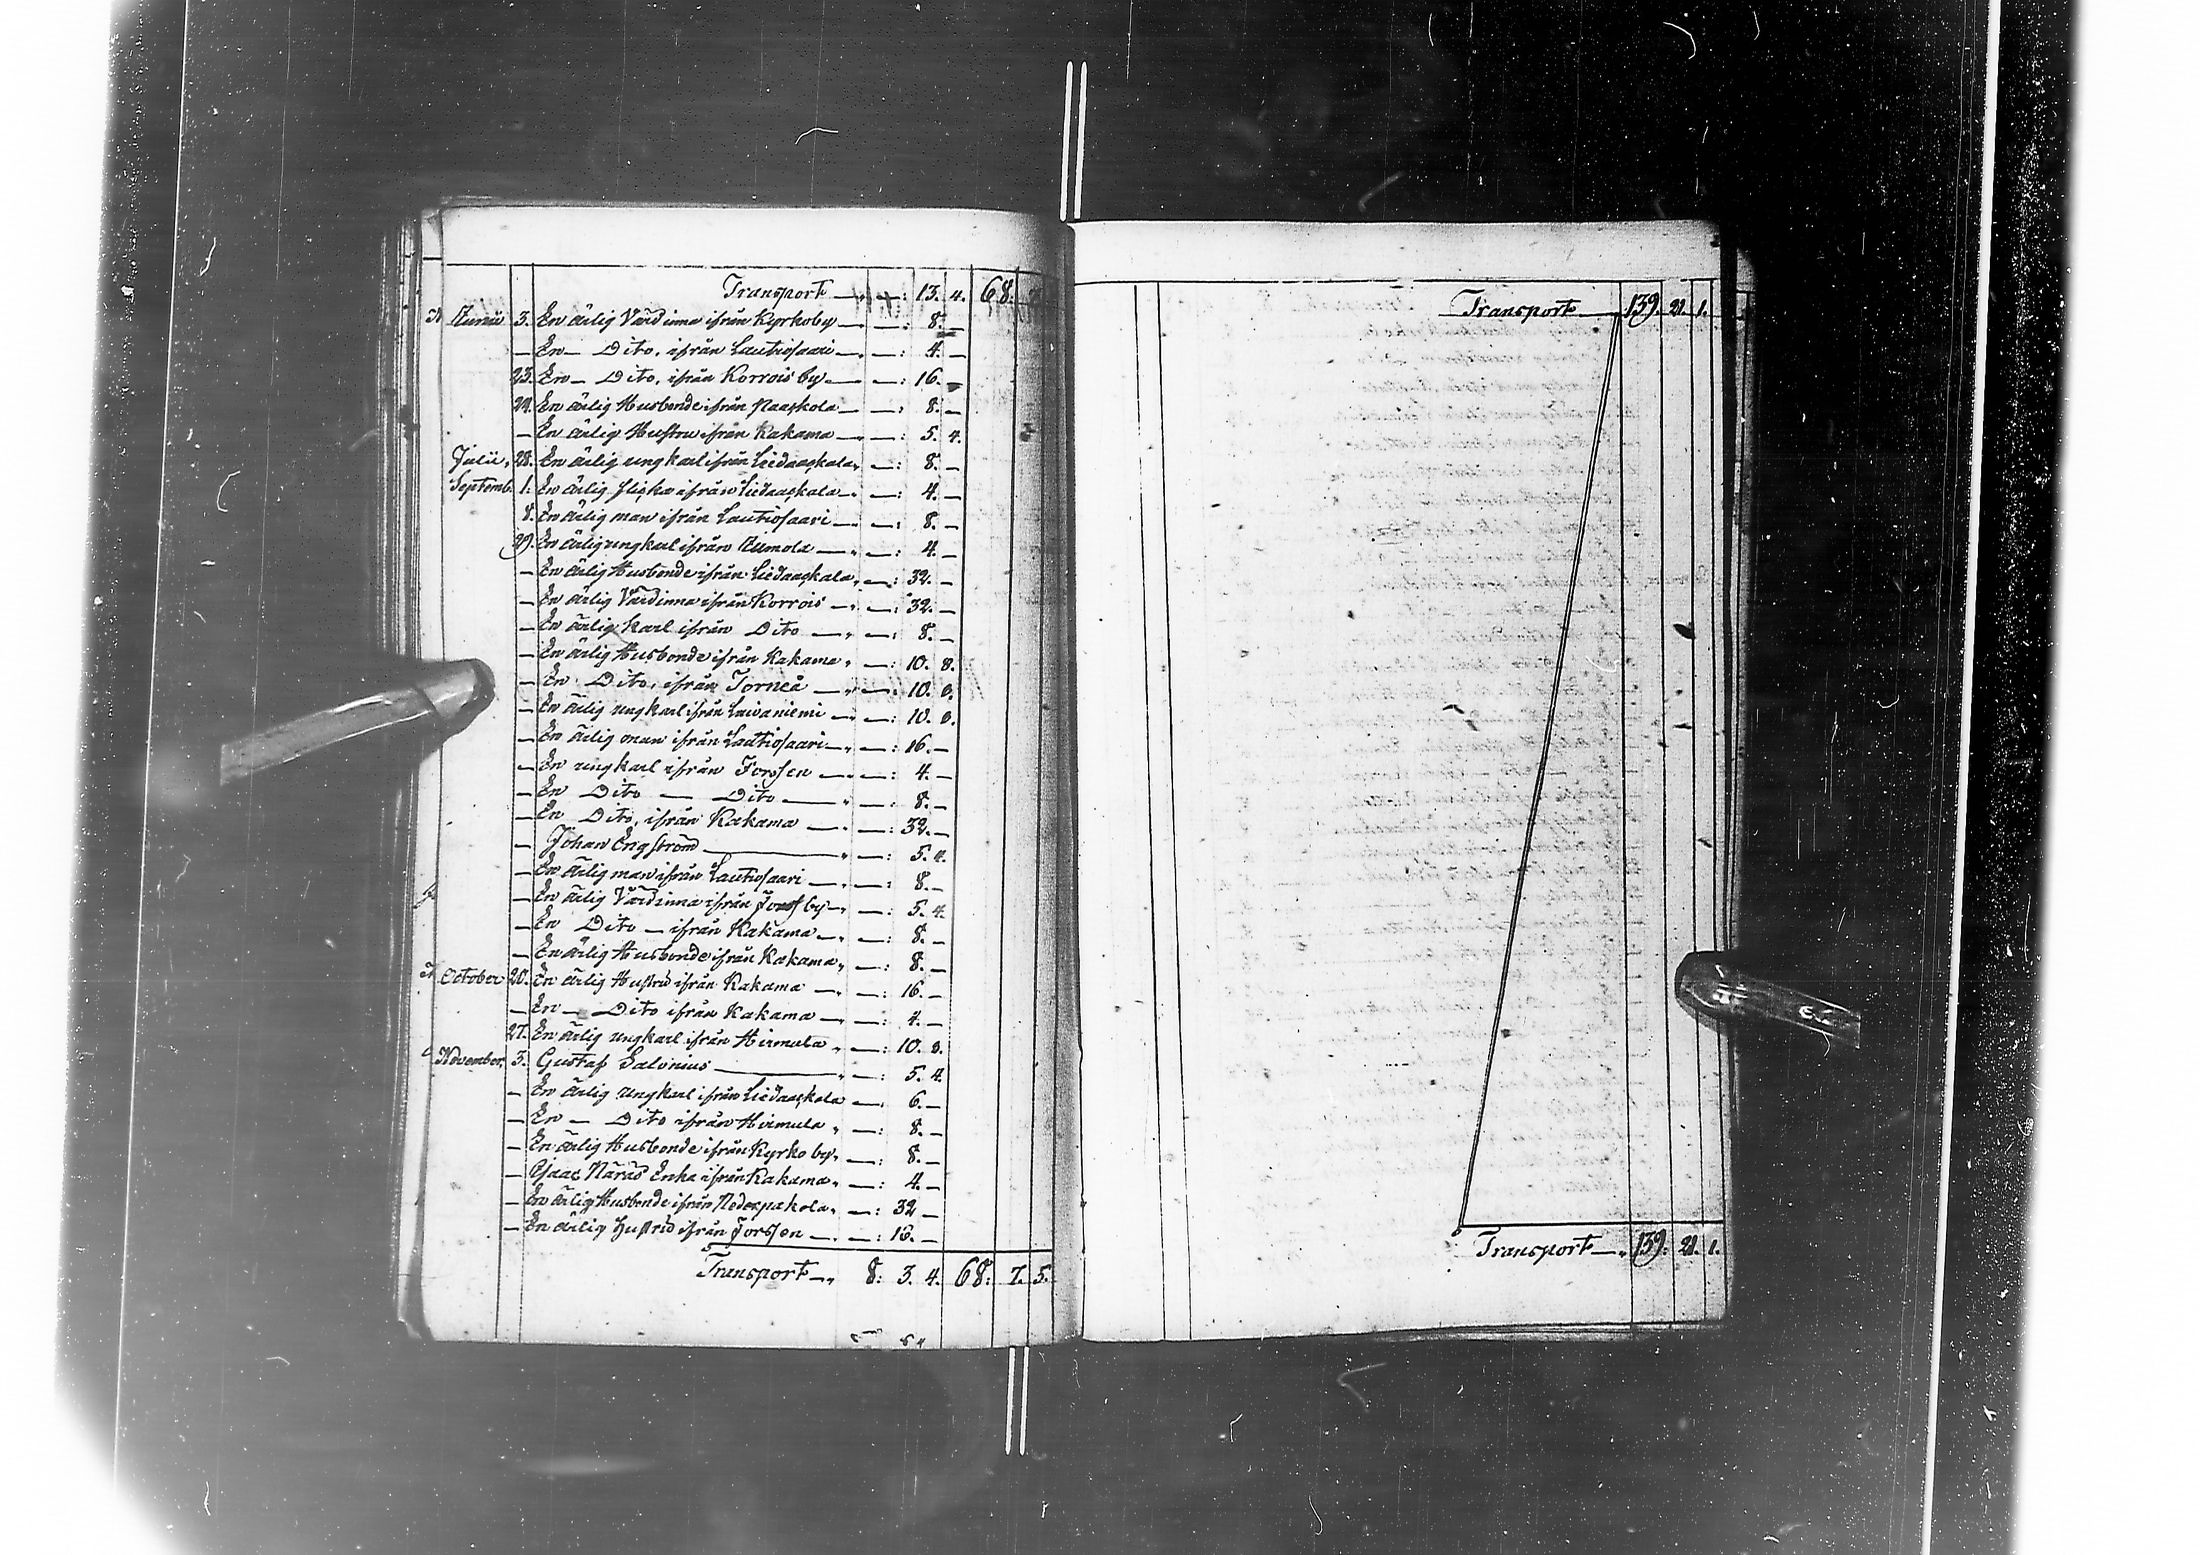 Transport — 13. 4. 68.
Junii 3. En ärlig Värdinna ifrån Kyrkoby — — : 8. —
— En — Dito, ifrån Lautiosaari — — : 4. —
23. En — Dito, ifrån Korrois by — — : 16. —
24. En ärlig Husbonde ifrån Raaskola — — : 8. —
— En ärlig Hustru ifrån Kakama — — : 5. 4.
Julii, 28. En ärlig ungkarl ifrån Liedaaskala, — : 8. —
Septemb. 1. En ärlig flicka ifrån Liedaaskala — : 4. —
8. En ärlig man ifrån Lautiosaari — — : 8. —
29. En ärlig ungkarl ifrån — — : 4. —
— En ärlig Husbonde ifrån Liedaaskala, — : 32. —
— En ärlig Värdinna ifrån Korrois — — : 32. —
— En ärlig karl ifrån Dito — — : 8. —
— En ärlig Husbonde ifrån Kakama, — : 10. 8.
— En Dito, ifrån Torneå — — : 10. 8.
— En ärlig ungkarl ifrån Laivaniemi — — : 10. 8.
— En ärlig man ifrån Lautiosaari — — : 16. —
— En ungkarl ifrån Forssen — — : 4. —
— En Dito — Dito — — : 8. —
— En Dito, ifrån Kakama — — : 32. —
— Johan Engström — — : 5. 4.
— En ärlig man ifrån Lautiosaari — — : 8. —
— En ärlig Värdinna ifrån by — — : 5. 4.
— En Dito — ifrån Kakama — — : 8. —
— En ärlig Husbonde ifrån Kakama, — : 8. —
October 20. En ärlig Hustru ifrån Kakama — — : 16. —
— En — Dito ifrån Kakama — — : 4. —
27. En ärlig ungkarl ifrån Hirmula — : 10. 8.
November, 3. Gustaf Salonius — — : 5. 4.
— En ärlig ungkarl ifrån Liedaaskala — : 6. —
— En — Dito ifrån Hirmula, — : 8. —
— En ärlig Husbonde ifrån Kyrkoby, — : 8. —
— Isaac Näräs Enka ifrån Kakama, — : 4. —
— En ärlig Husbonde ifrån, — : 32 —
— En ärlig hustru ifrån Forssen — — : 16. —
Transport — 8: 3. 4. 68: 7. 5.
Transport — 139. 21. 1.
Transport — 139: 21. 1.